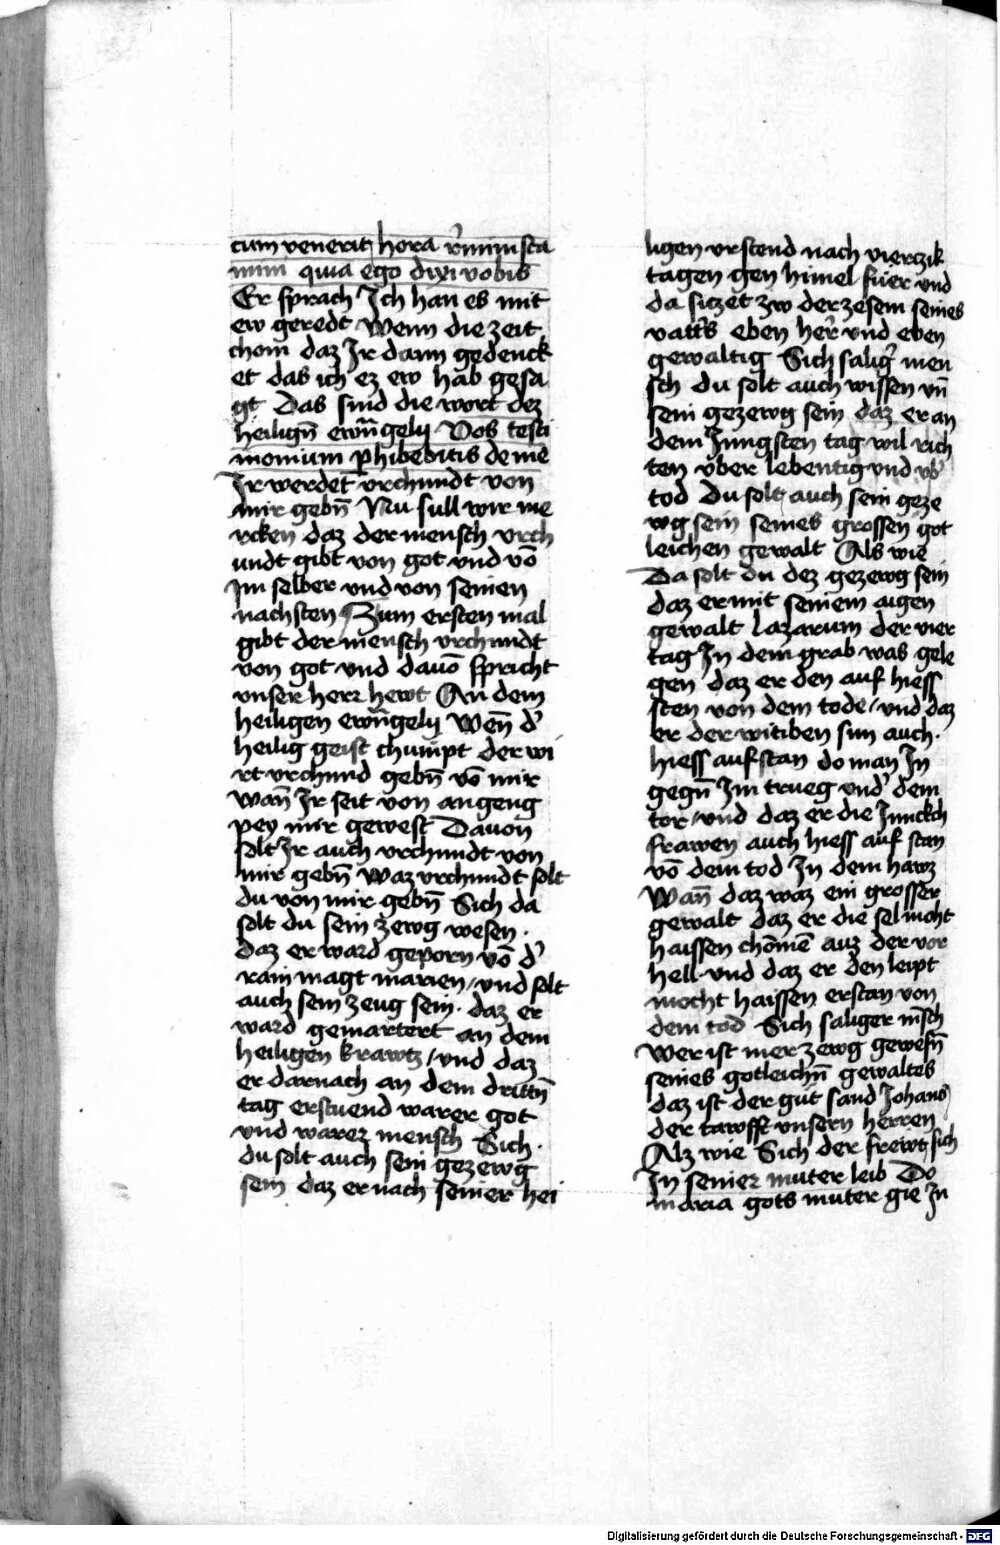 cum venerit hora r̓minisca
mini quia ego dixi vobis
Er sprach Ich han es mit
ew geredt Wenn die zeit
chom daz Ir dann gedenck
et das ich ez ew hab gesa
gt Das sind die wort dez
heiligñ ewñgelij Vos testi
monium phibebitis de me
Ir werdet vrchundt von
mir gebñ Nu sull wir me
rcken daz der mensch vrch
undt gibt von got vnd võ
Im selber vnd von seinen
nachsten Zum ersten mal
gibt der mensch vrchundt
von got vnd dauõ spricht
vnser herr hewt An dem
heiligen ewñgelij Weñ d̓
heilig geist chumpt der wi
rt vrchund gebñ võ mir
wañ Ir seit von angeng
pey mir gewest Dauon
solt Ir auch vrchundt von
mir gebñ Waz vrchundt solt
du von mir gebñ Sich da
solt du sein zewg wesen ·
daz er ward geporn võ d̓
rain magt marien / vnd solt
auch sein zeug sein · daz er
ward gemartert an dem
heiligen krawtz / vnd daz
er darnach an dem drittñ
tag erstuend warer got
vnd warer mensch Sich ·
du solt auch sein gezewg
sein daz er nach seiner hei
ligen vrstend nach vierczik
tagen gen himel fuer vnd
da siczet zw der zesem seines
vatt̓s eben her̓ vnd eben
gewaltig Sich salig̓ men
sch du solt auch wissen vñ
sein gezewg sein daz er an
dem Jungsten tag wil rich
ten vber lebentig vnd vb̓
tod Du solt auch sein geze
wg sein seines grossen got
leichen gewalt Als wie
Da solt du dez gezewg sein
daz er mit seinem aigen
gewalt lazarum der vier
tag In dem grab was gele
gen daz er den auf hiess
sten von dem tode / vnd daz
er der witiben sun auch ·
hiess aufstan do man In
gegñ Im trueg vnd̓ dem
tor / vnd daz er die Junckch
frawen auch hiess auf stan
võ dem tod In dem hawz
Wañ daz waz ein grosser
gewalt daz er die sel mocht
haissen chõmẽ auz der vor
hell · vnd daz er den leipt
mocht haissen erstan von
dem tod Sich saliger m̃sch
Wer ist mer zewg gewesñ
seines gotleichñ gewaltes
daz ist der gut sand Johans
der tawfft vnsern herren
Alz wie Sich der frewt sich
In seiner muter leib Do
maria gots muter gie In
Digitalisierung gefördert durch die Deutsche Forschungsgemeinschaft - DFG